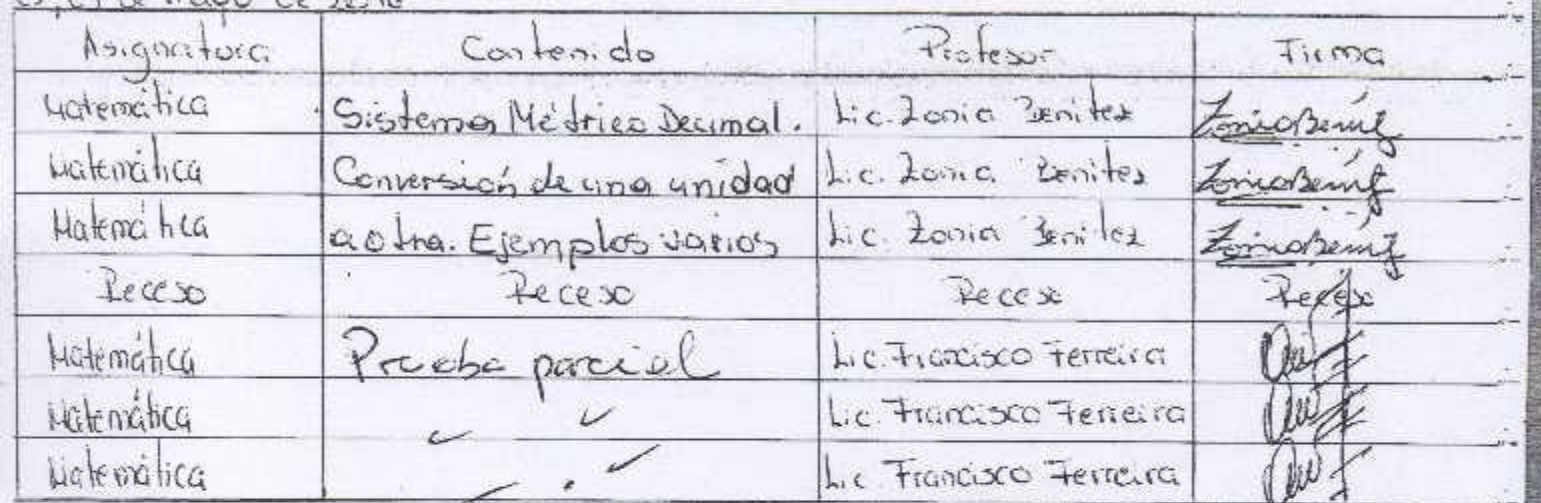 de mayo de
Asignatura Contenido Profesor Firma
Matemática Sistema Métrico Decimal. Lic. Zonia Benitez Zonia Benítz
Matemática Conversión de una unidad Lic. Zonia Benitez Zonia Benítz
Matemática a otra. Ejemplos varios Lic. Zonia Benitez Zonia Benítz
Receso Receso Receso Receso
Matemática Prueba parcial Lic. Francisco Ferreira
Matemática Lic. Francisco Ferreira
Matemática Lic Francisco Ferreira